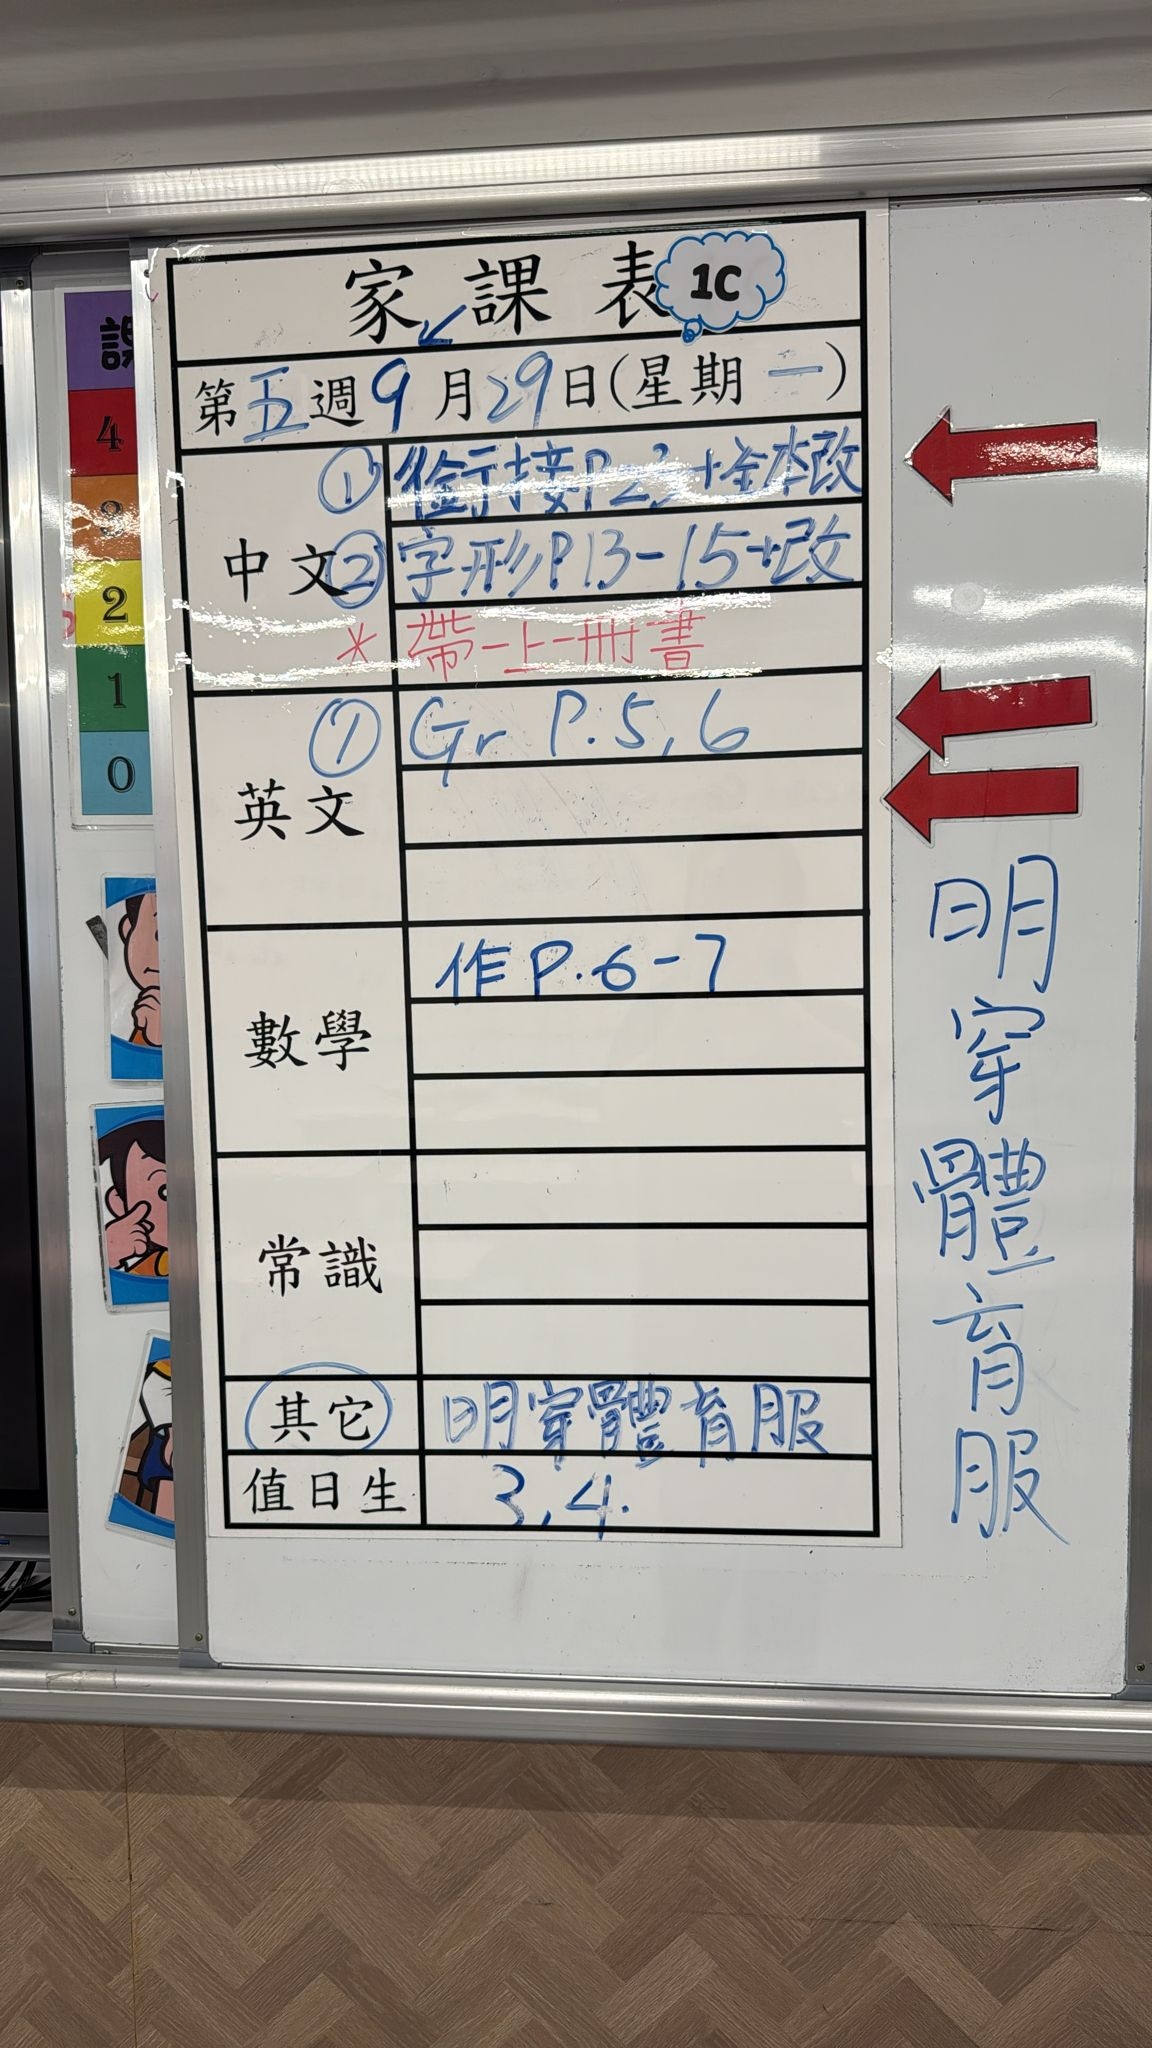 家課表 1C
第五週9月29日(星期一)
中文
① 銜接P23+全本改
② 字形P13-15+改
* 帶一上一冊書
英文
① Gr P.5,6
數學
作P.6-7
常識
其它
明穿體育服
值日生
3,4.
明穿體育服
4
2
1
0